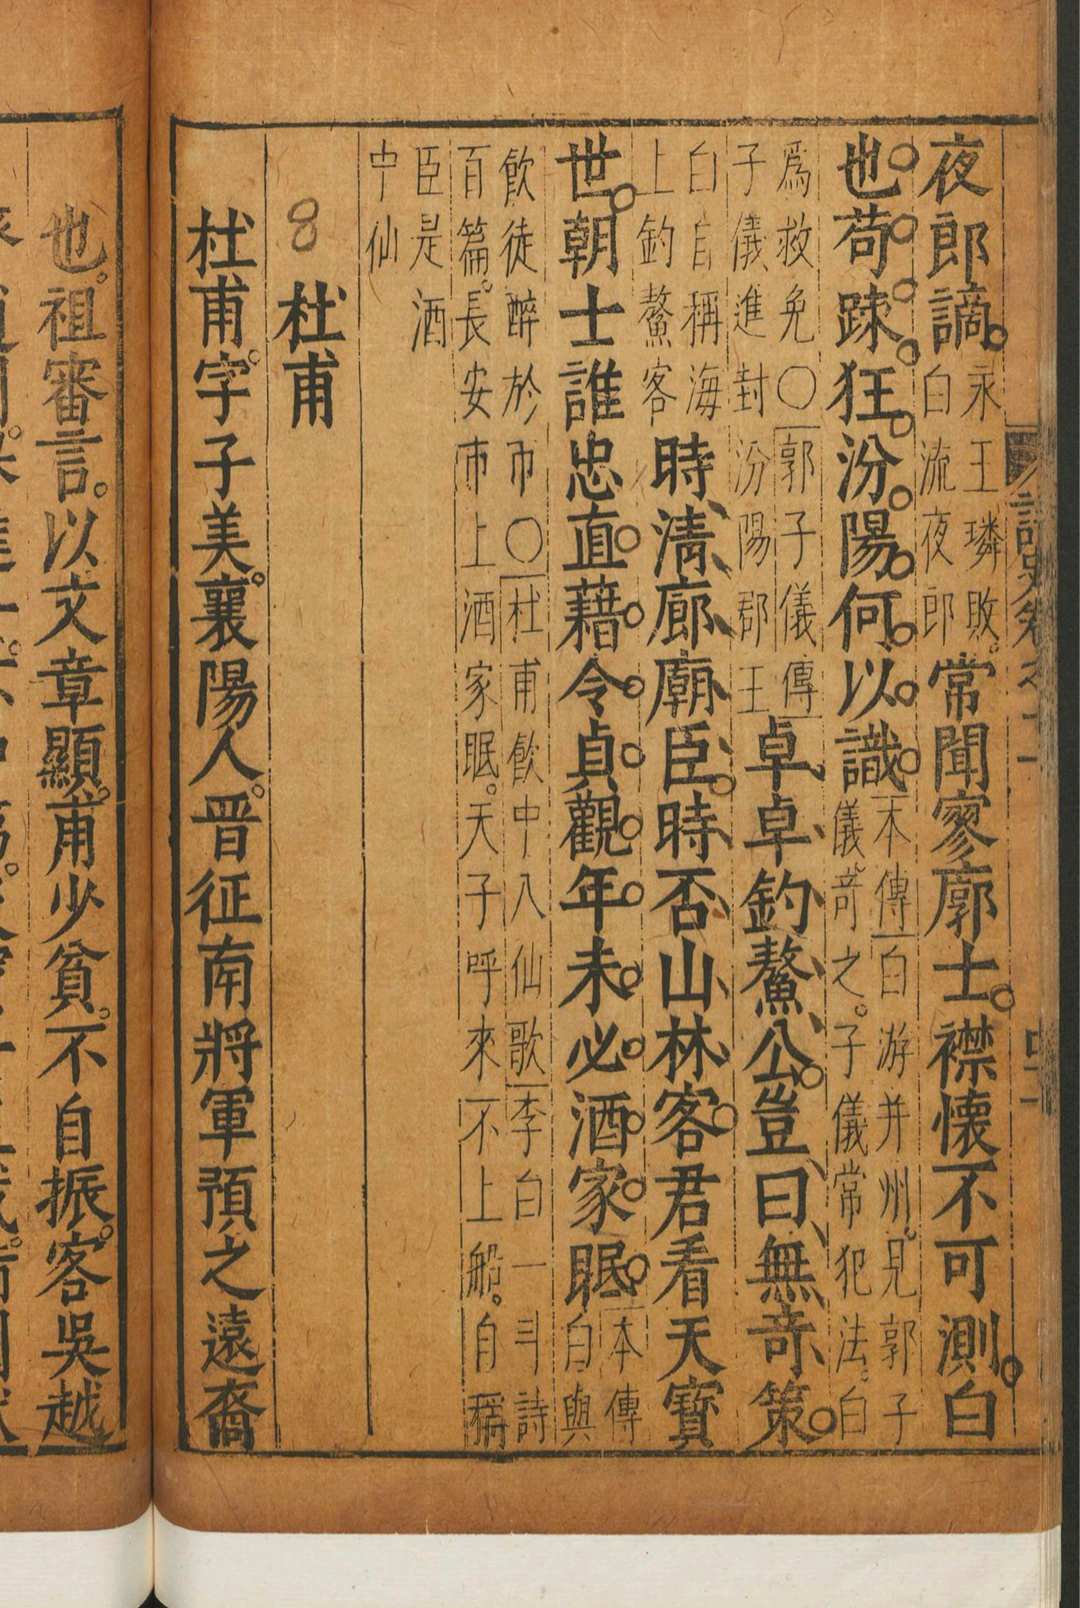 夜郎謫。永王璘敗。白流夜郎常聞寥廓士。襟懐不可測。白
也苟踈狂。汾陽何以識。本傳白游并州。見郭子儀竒之。子儀常犯法。白
爲救免○郭子儀傳子儀進封汾陽郡王卓卓釣鰲公。豈曰無竒策。
白自稱海上釣鰲客時清廊廟臣。時否山林客。君看天寶
世。朝士誰忠直。藉令貞觀年。未必酒家眠。本傳白與
飲徒醉於市○杜甫飲中八仙歌李白一斗詩百篇。長安市上酒家眠。天子呼來不上船。自稱
臣是酒中仙
8 杜甫
杜甫。字子美。襄陽人。晋征南將軍預之遠裔
也。祖審言。以文章顯。甫少貧。不自振。客吳越